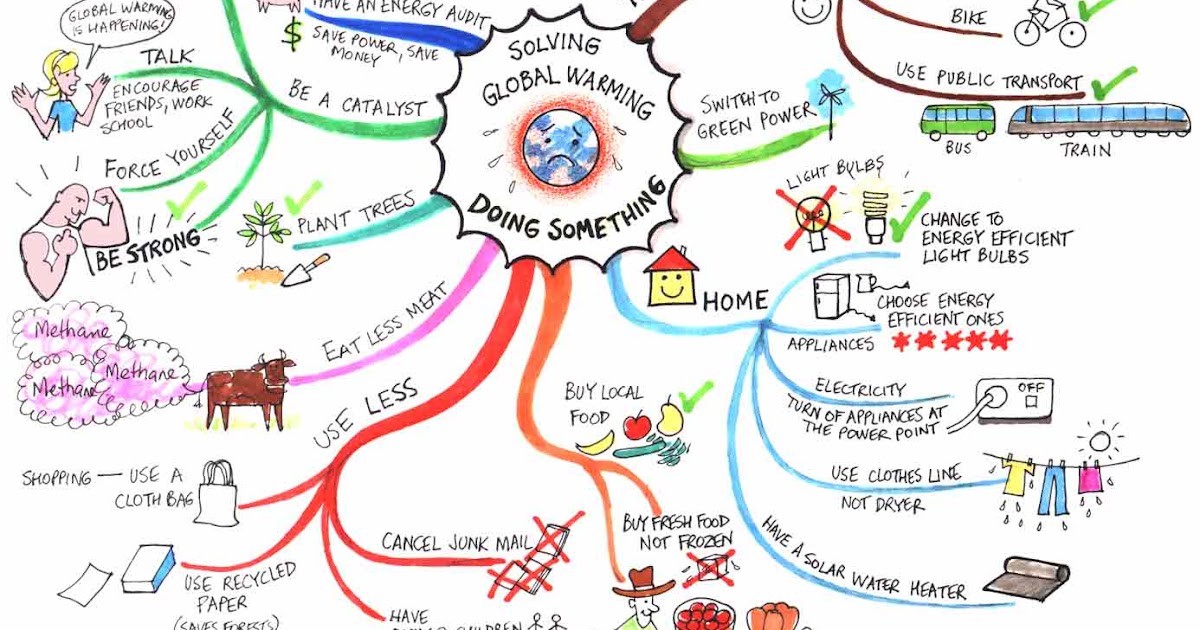 SOLVING
GLOBAL WARMING
DOING SOMETHING
GLOBAL WARMING
IS HAPPENING!
TALK
ENCOURAGE
FRIENDS, WORK
SCHOOL
HAVE AN ENERGY AUDIT
$
SAVE POWER, SAVE
MONEY
BE A CATALYST
FORCE YOURSELF
BE STRONG
PLANT TREES
EAT LESS MEAT
Methane
Methane
Methane
USE LESS
SHOPPING — USE A
CLOTH BAG
USE RECYCLED
PAPER
(SAVES FORESTS)
CANCEL JUNK MAIL
HAVE
CHILDREN
BUY LOCAL
FOOD
BUY FRESH FOOD
NOT FROZEN
BIKE
USE PUBLIC TRANSPORT
BUS
TRAIN
SWITCH TO
GREEN POWER
LIGHT BULBS
CHANGE TO
ENERGY EFFICIENT
LIGHT BULBS
HOME
CHOOSE ENERGY
EFFICIENT ONES
APPLIANCES
ELECTRICITY
TURN OF APPLIANCES AT
THE POWER POINT
OFF
USE CLOTHES LINE
NOT DRYER
HAVE A SOLAR WATER HEATER